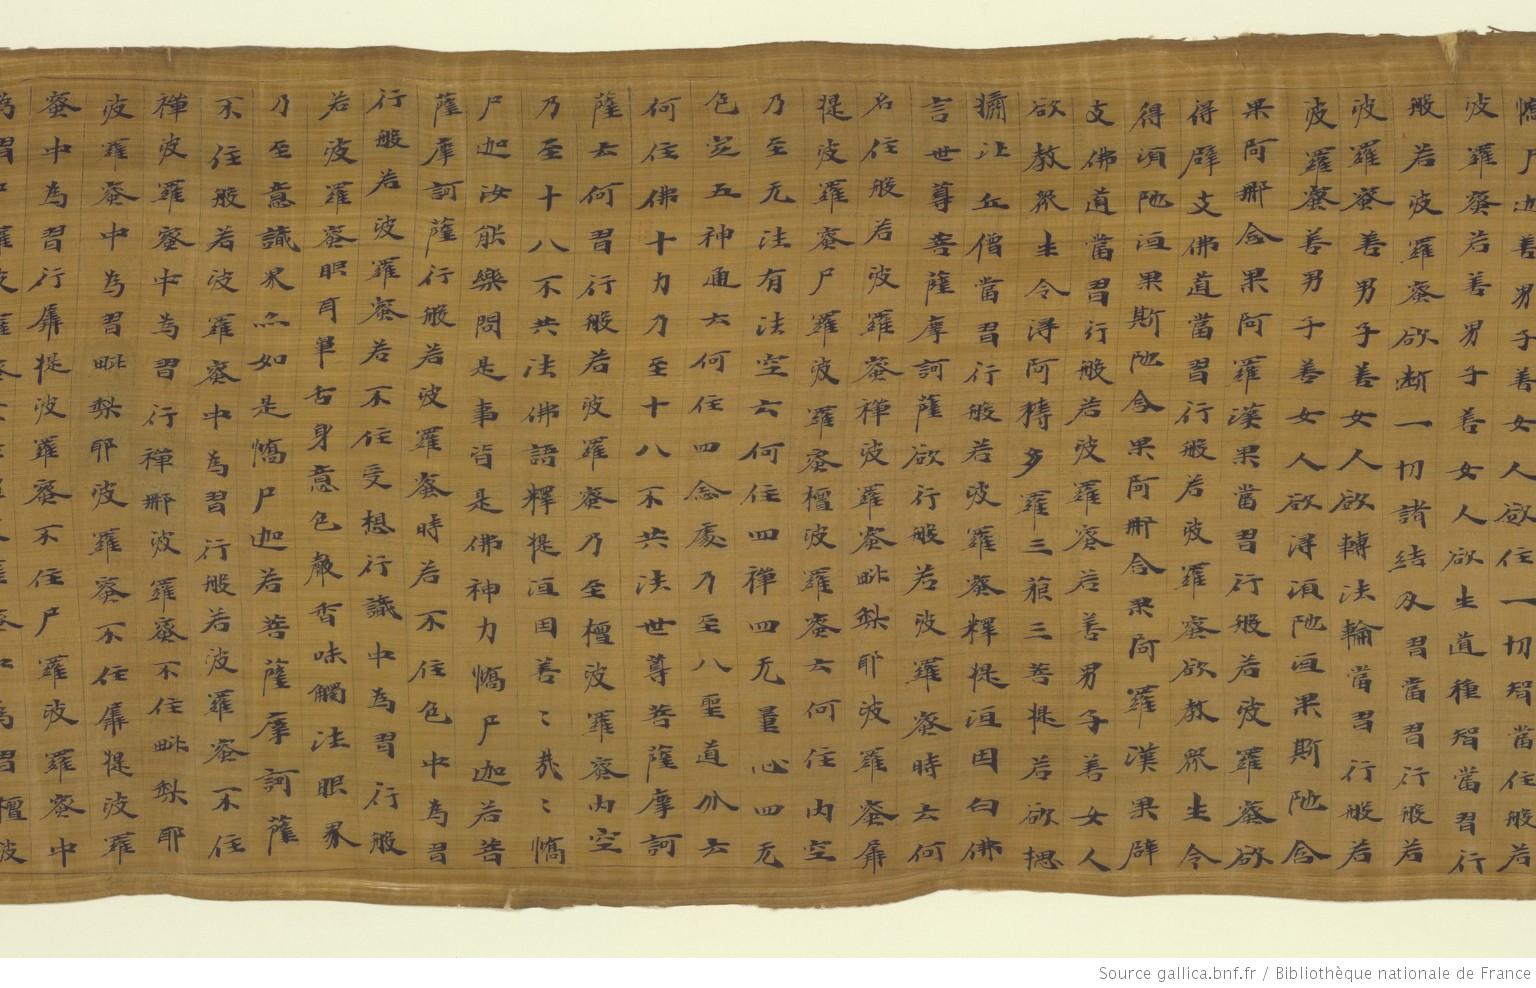 憍尸迦善男子善女人欲住一切智當住般若
波羅蜜若善男子善女人欲生道種智當習行
般若波羅蜜欲斷一切諸結及習當習行般若
波羅蜜善男子善女人欲轉法輪當習行般若
波羅蜜善男子善女人欲得須陁洹果斯陁含
果阿那含果阿羅漢果當習行般若波羅蜜欲
得辟支佛道當習行般若波羅蜜欲教眾生令
得須陁洹果斯陁含果阿那含果阿羅漢果辟
支佛道當習行般若波羅蜜若善男子善女人
欲教眾生令得阿耨多羅三藐三菩提若欲揔
攝比丘僧當習行般若波羅蜜釋提洹因白佛
言世尊菩薩摩訶薩欲行般若波羅蜜時云何
名住般若波羅蜜禪波羅蜜毗梨耶波羅蜜羼
提波羅蜜尸羅波羅蜜檀波羅蜜云何住內空
乃至无法有法空云何住四禪四无量心四无
色定五神通云何住四念處乃至八聖道分云
何住佛十力乃至十八不共法世尊菩薩摩訶
薩云何習行般若波羅蜜乃至檀波羅蜜內空
乃至十八不共法佛語釋提洹因善〻哉〻憍
尸迦汝能樂問是事皆是佛神力憍尸迦若菩
薩摩訶薩行般若波羅蜜時若不住色中為習
行般若波羅蜜若不住受想行識中為習行般
若波羅蜜眼耳鼻舌身意色聲香味觸法眼界
乃至意識界亦如是憍尸迦若菩薩摩訶薩
不住般若波羅蜜中為習行般若波羅蜜不住
禪波羅蜜中為習行禪那波羅蜜不住毗梨耶
波羅蜜中為習毗梨耶波羅蜜不住羼提波羅
蜜中為習行羼提波羅蜜不住尸羅波羅蜜中
Source gallica.bnf.fr / Bibliothèque nationale de France